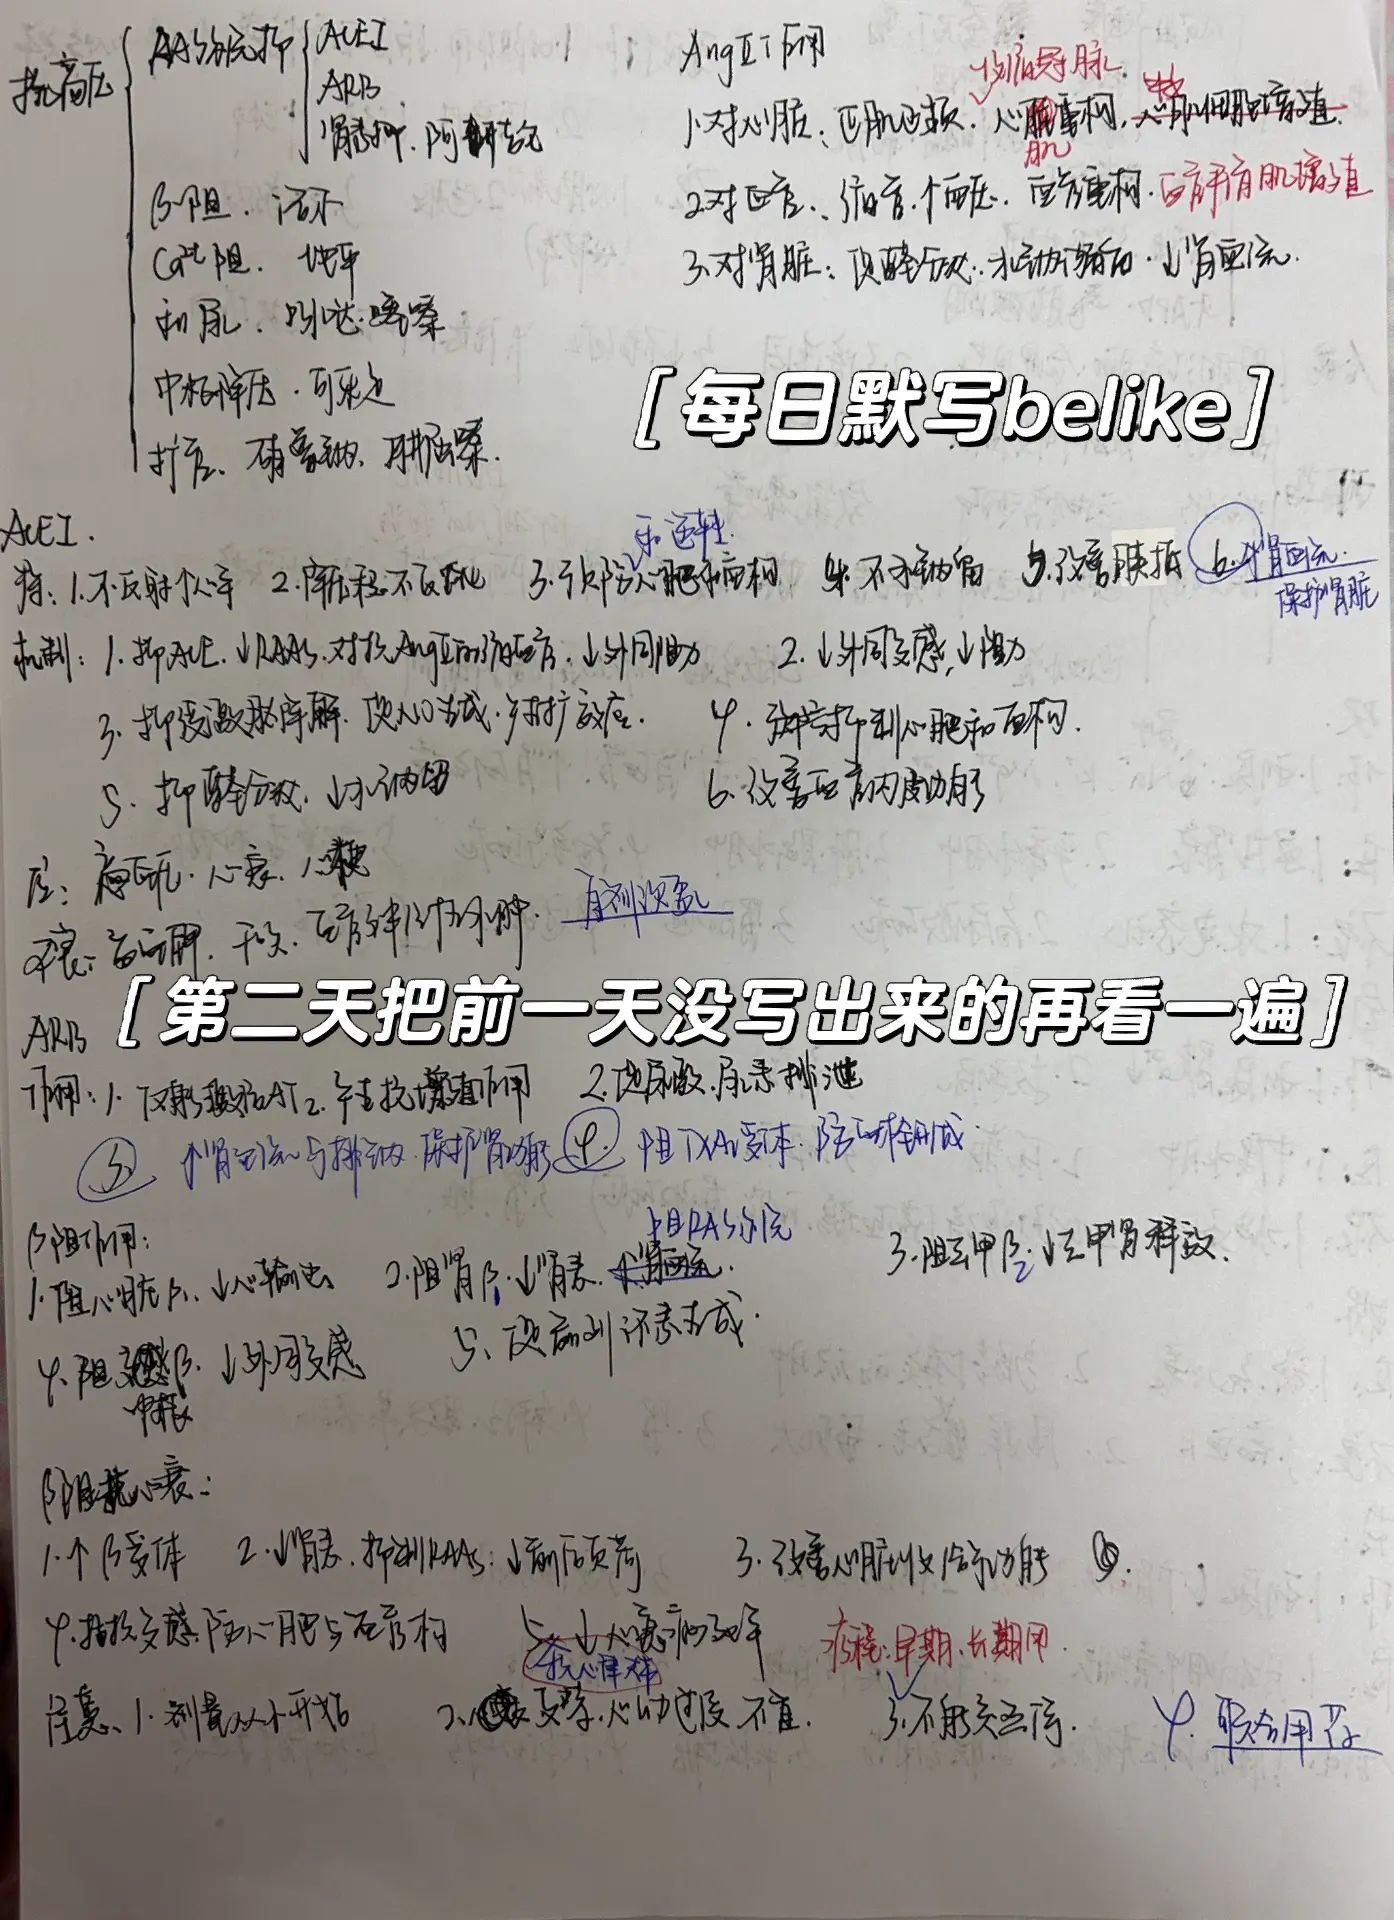 抗高压
RAAS系统抑
ACEI
ARB
肾素抑.阿利吉仑
β阻.洛尔
Ca²⁺阻.地平
利尿.吲哒.噻嗪
中枢降压.可乐定
扩管.硝普钠.肼屈嗪.
AngⅡ作用
收缩冠脉.
1.对心脏:正肌正频.心肌重构,
2.对血管、缩管.个血压.血管重构.血管平肌增殖
3.对肾脏:促醛分泌.水钠潴留.↓肾血流.
[每日默写belike]
ACEI.
和逆转
特:1.不反射个心率 2.降压稳不反跳 3.预防心肥和血构 4.不水钠留 5.改善胰抵 6.个肾血流.
保护肾脏
机制:1.抑ACE.↓RAAS.对抗AngⅡ的缩血管.↓外周阻力 2.↓外周交感,↓阻力
3.抑缓激肽降解.促NO合成.产扩效应. 4.抑制心肥和血构.
5.抑醛分泌.↓水钠留 6.改善血管内皮功能
应:高血压.心衰.心梗
不良:高血钾.干咳.血管神经性水肿. 首剂
[第二天把前一天没写出来的再看一遍]
ARB
作用:1.反射激活AT₂.产生抗增殖作用 2.促尿酸.尿素排泄
③ 个肾血流与排钠.保护肾功能 ④.阻TXA₂受体.防血栓形成.
β阻作用:
阻RAS系统
1.阻心脏β₁.↓心输出 2.阻肾β₁.↓肾素. 3.阻去甲β₂.↓去甲肾释放.
4.阻中枢β.↓外周交感 5.促前列环素合成.
β阻抗心衰:
1.个β受体 2.↓肾素.抑制RAAS:↓前后负荷 3.改善心脏收缩功能
4.拮抗交感.防心肥与血管构 5.↓心衰病死率 疗程:早期.长期用.
抗心律失常
注意、1.剂量从小开始 2.支哮.心动过缓.不宜. 3.不能突然停. 4.联合用药